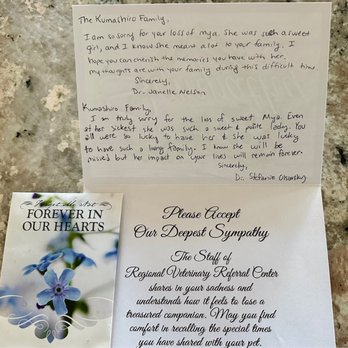 The Kumashiro Family,
I am so sorry for your loss of Mya. She was such a sweet
girl, and I know she meant a lot to your family. I
hope you can cherish the memories you have with her.
My thoughts are with your family during this difficult time
Sincerely,
Dr. Janelle Nelson
Kumashiro Family,
I am truly sorry for the loss of sweet Mya. Even
at her sickest she was such a sweet & polite lady. You
all were so lucky to have her & she was lucky
to have such a loving family. I know she will be
missed but her impact on your lives will remain forever.
Sincerely,
Dr. Stefanie
FOREVER IN
OUR HEARTS
Please Accept
Our Deepest Sympathy
The Staff of
Regional Veterinary Referral Center
shares in your sadness and
understands how it feels to lose a
treasured companion. May you find
comfort in recalling the special times
you have shared with your pet.